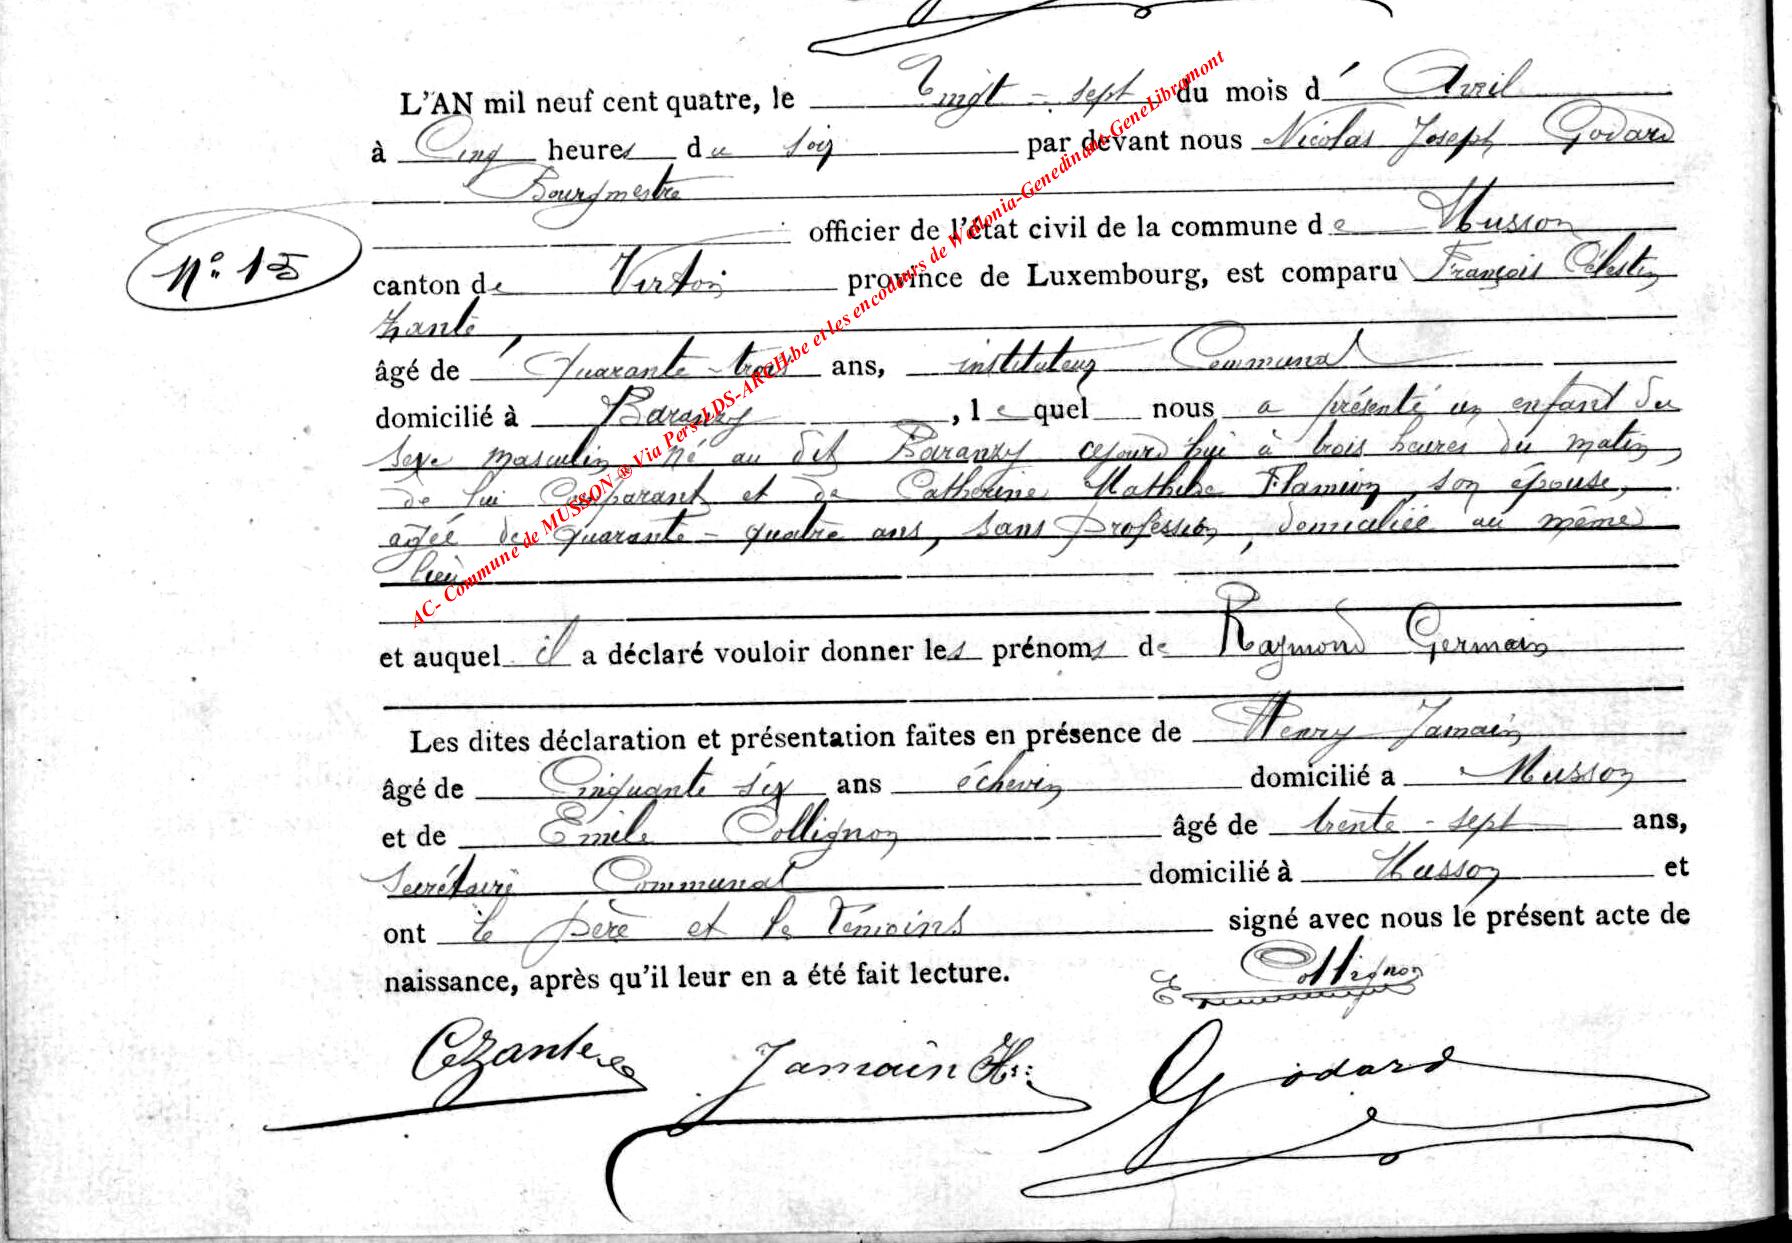 L'AN mil neuf cent quatre, le Vingt-sept du mois d' Avril
à Cinq heures du soir par devant nous Nicolas Joseph Godard
Bourgmestre
officier de l'état civil de la commune de Musson
N° 15
canton de Virton province de Luxembourg, est comparu François Célestin
Zante,
âgé de quarante-trois ans, instituteur Communal
domicilié à Baranzy, lequel nous a présenté un enfant du
sexe masculin, né au dit Baranzy cejourd'hui à trois heures du matin,
de lui Comparant et de Catherine Mathilde Flamion, son épouse,
agée de quarante-quatre ans, sans profession, domiciliée au même
lieu
et auquel il a déclaré vouloir donner les prénoms de Raymond Germain
Les dites déclaration et présentation faites en présence de Henry Jamain
âgé de Cinquante six ans échevin domicilié a Musson
et de Emile Collignon âgé de trente-sept ans,
Secrétaire Communal domicilié à Musson et
ont le père et le témoins signé avec nous le présent acte de
naissance, après qu'il leur en a été fait lecture.
E Collignon
CZante Jamain H. Godard
AC- Commune de MUSSON ® Via Pers-LDS-ARCH.be et les encodeurs de Wallonia-Genedinant-GeneLibramont